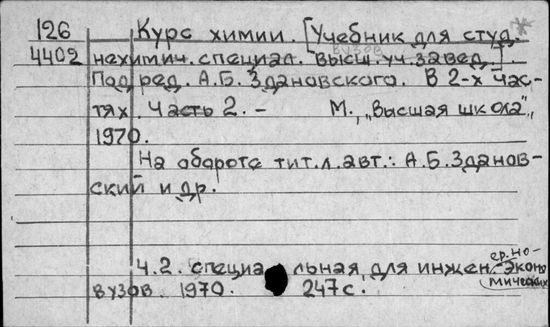 126 Курс химии. [Учебник для студ.
4402 нехимич. специал. высш. уч. завед.]
вузов
Под ред. А.Б. Здановского. В 2-х час-
тях. Часть 2. - М., „Высшая школа",
1970.
На обороте тит. л. авт.: А.Б. Зданов-
ский и др.
Ч. 2. специальная, для инжен.-эконо
мических
вузов. 1970. 247 с.